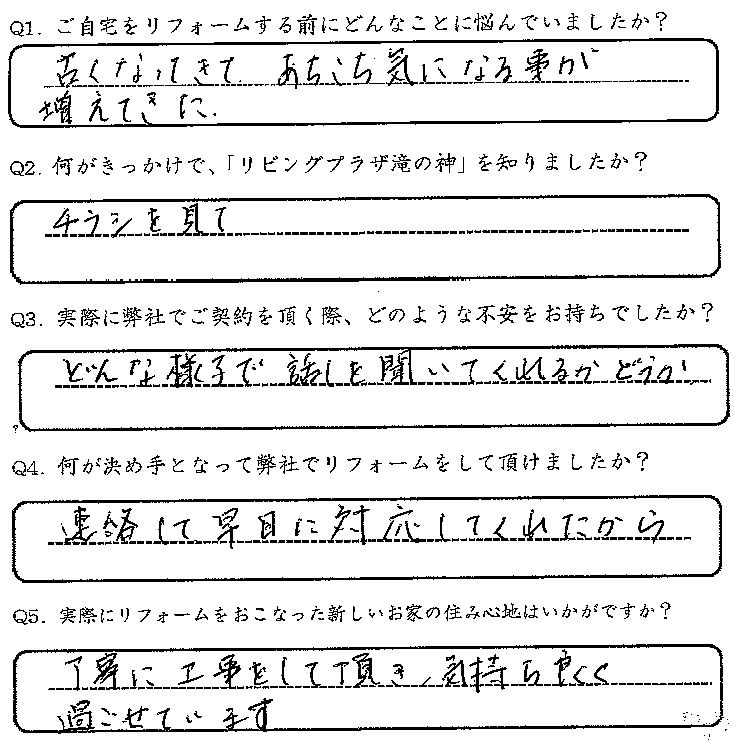 Q1. ご自宅をリフォームする前にどんなことに悩んでいましたか？
古くなってきて、あちこち気になる事が
増えてきた.
Q2. 何がきっかけで、「リビングプラザ滝の神」を知りましたか？
チラシを見て
Q3. 実際に弊社でご契約を頂く際、どのような不安をお持ちでしたか？
どんな様子で話しを聞いてくれるかどうか
Q4. 何が決め手となって弊社でリフォームをして頂けましたか？
連絡して早目に対応してくれたから
Q5. 実際にリフォームをおこなった新しいお家の住み心地はいかがですか？
丁寧に工事をして頂き、気持ち良く
過ごせています